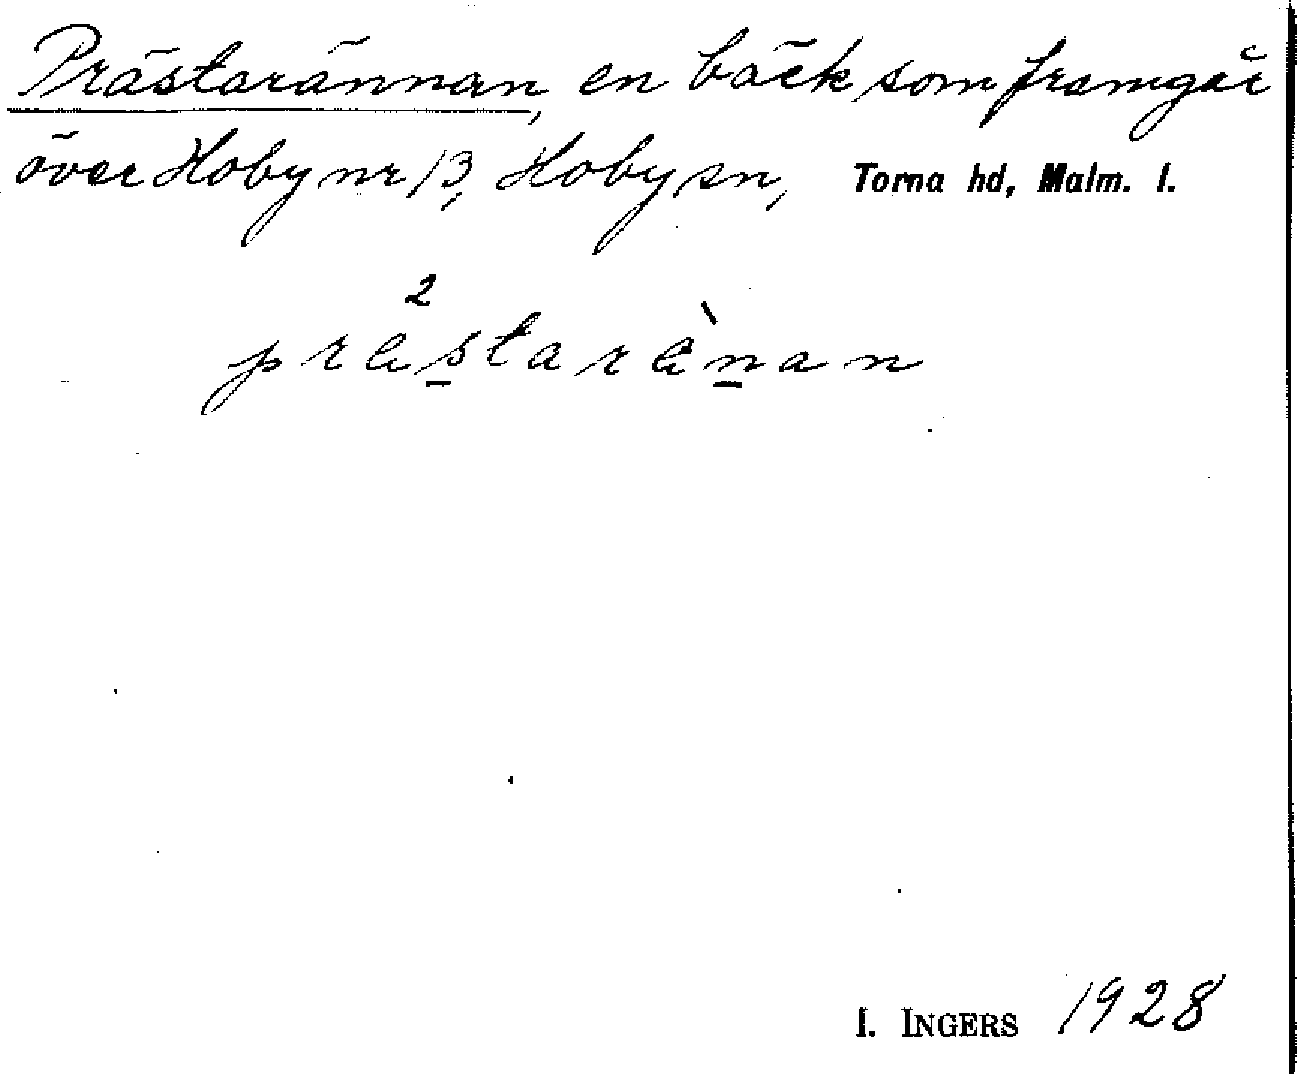 Prästarännan, en bäck som framgår
över Hoby nr 13, Hoby sn, Torna hd, Malm. l.
præ²staræ̀nan
I. INGERS 1928